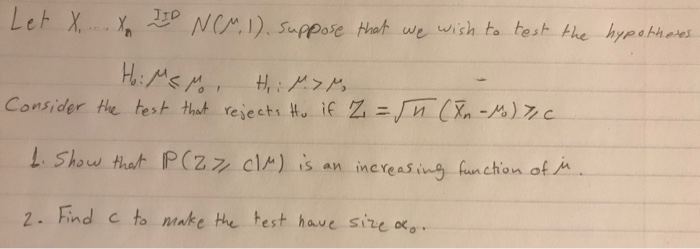 Let X, ... Xₙ IID ~ N(μ, 1). Suppose that we wish to test the hypotheses
H₀: μ ≤ μ₀, H₁: μ > μ₀
Consider the test that rejects H₀ if Z = √n (X̄ₙ - μ₀) ≥ c
1. Show that P(Z ≥ c|μ) is an increasing function of μ.
2. Find c to make the test have size α₀.